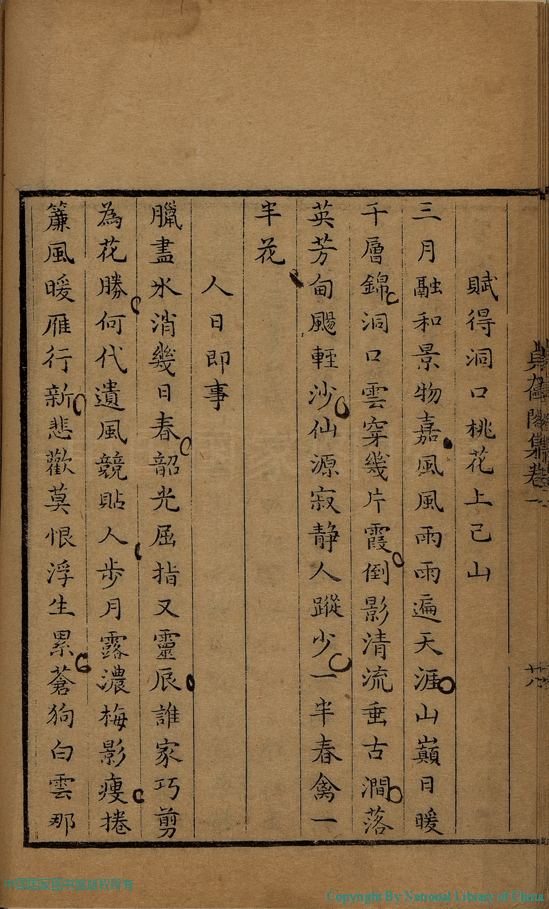 賦得洞口桃花上已山
三月融和景物嘉風風雨雨遍天涯山巔日暖
千層錦洞口雲穿幾片霞倒影清流垂古澗落
英芳甸颺輕沙仙源寂静人蹤少一半春禽一
半花
人日即事
臘盡氷消幾日春韶光屈指又靈辰誰家巧剪
為花勝何代遺風競貼人步月露濃梅影瘦捲
簾風暖雁行新悲歡莫恨浮生累蒼狗白雲那
集卷一
Copyright By National Library of China